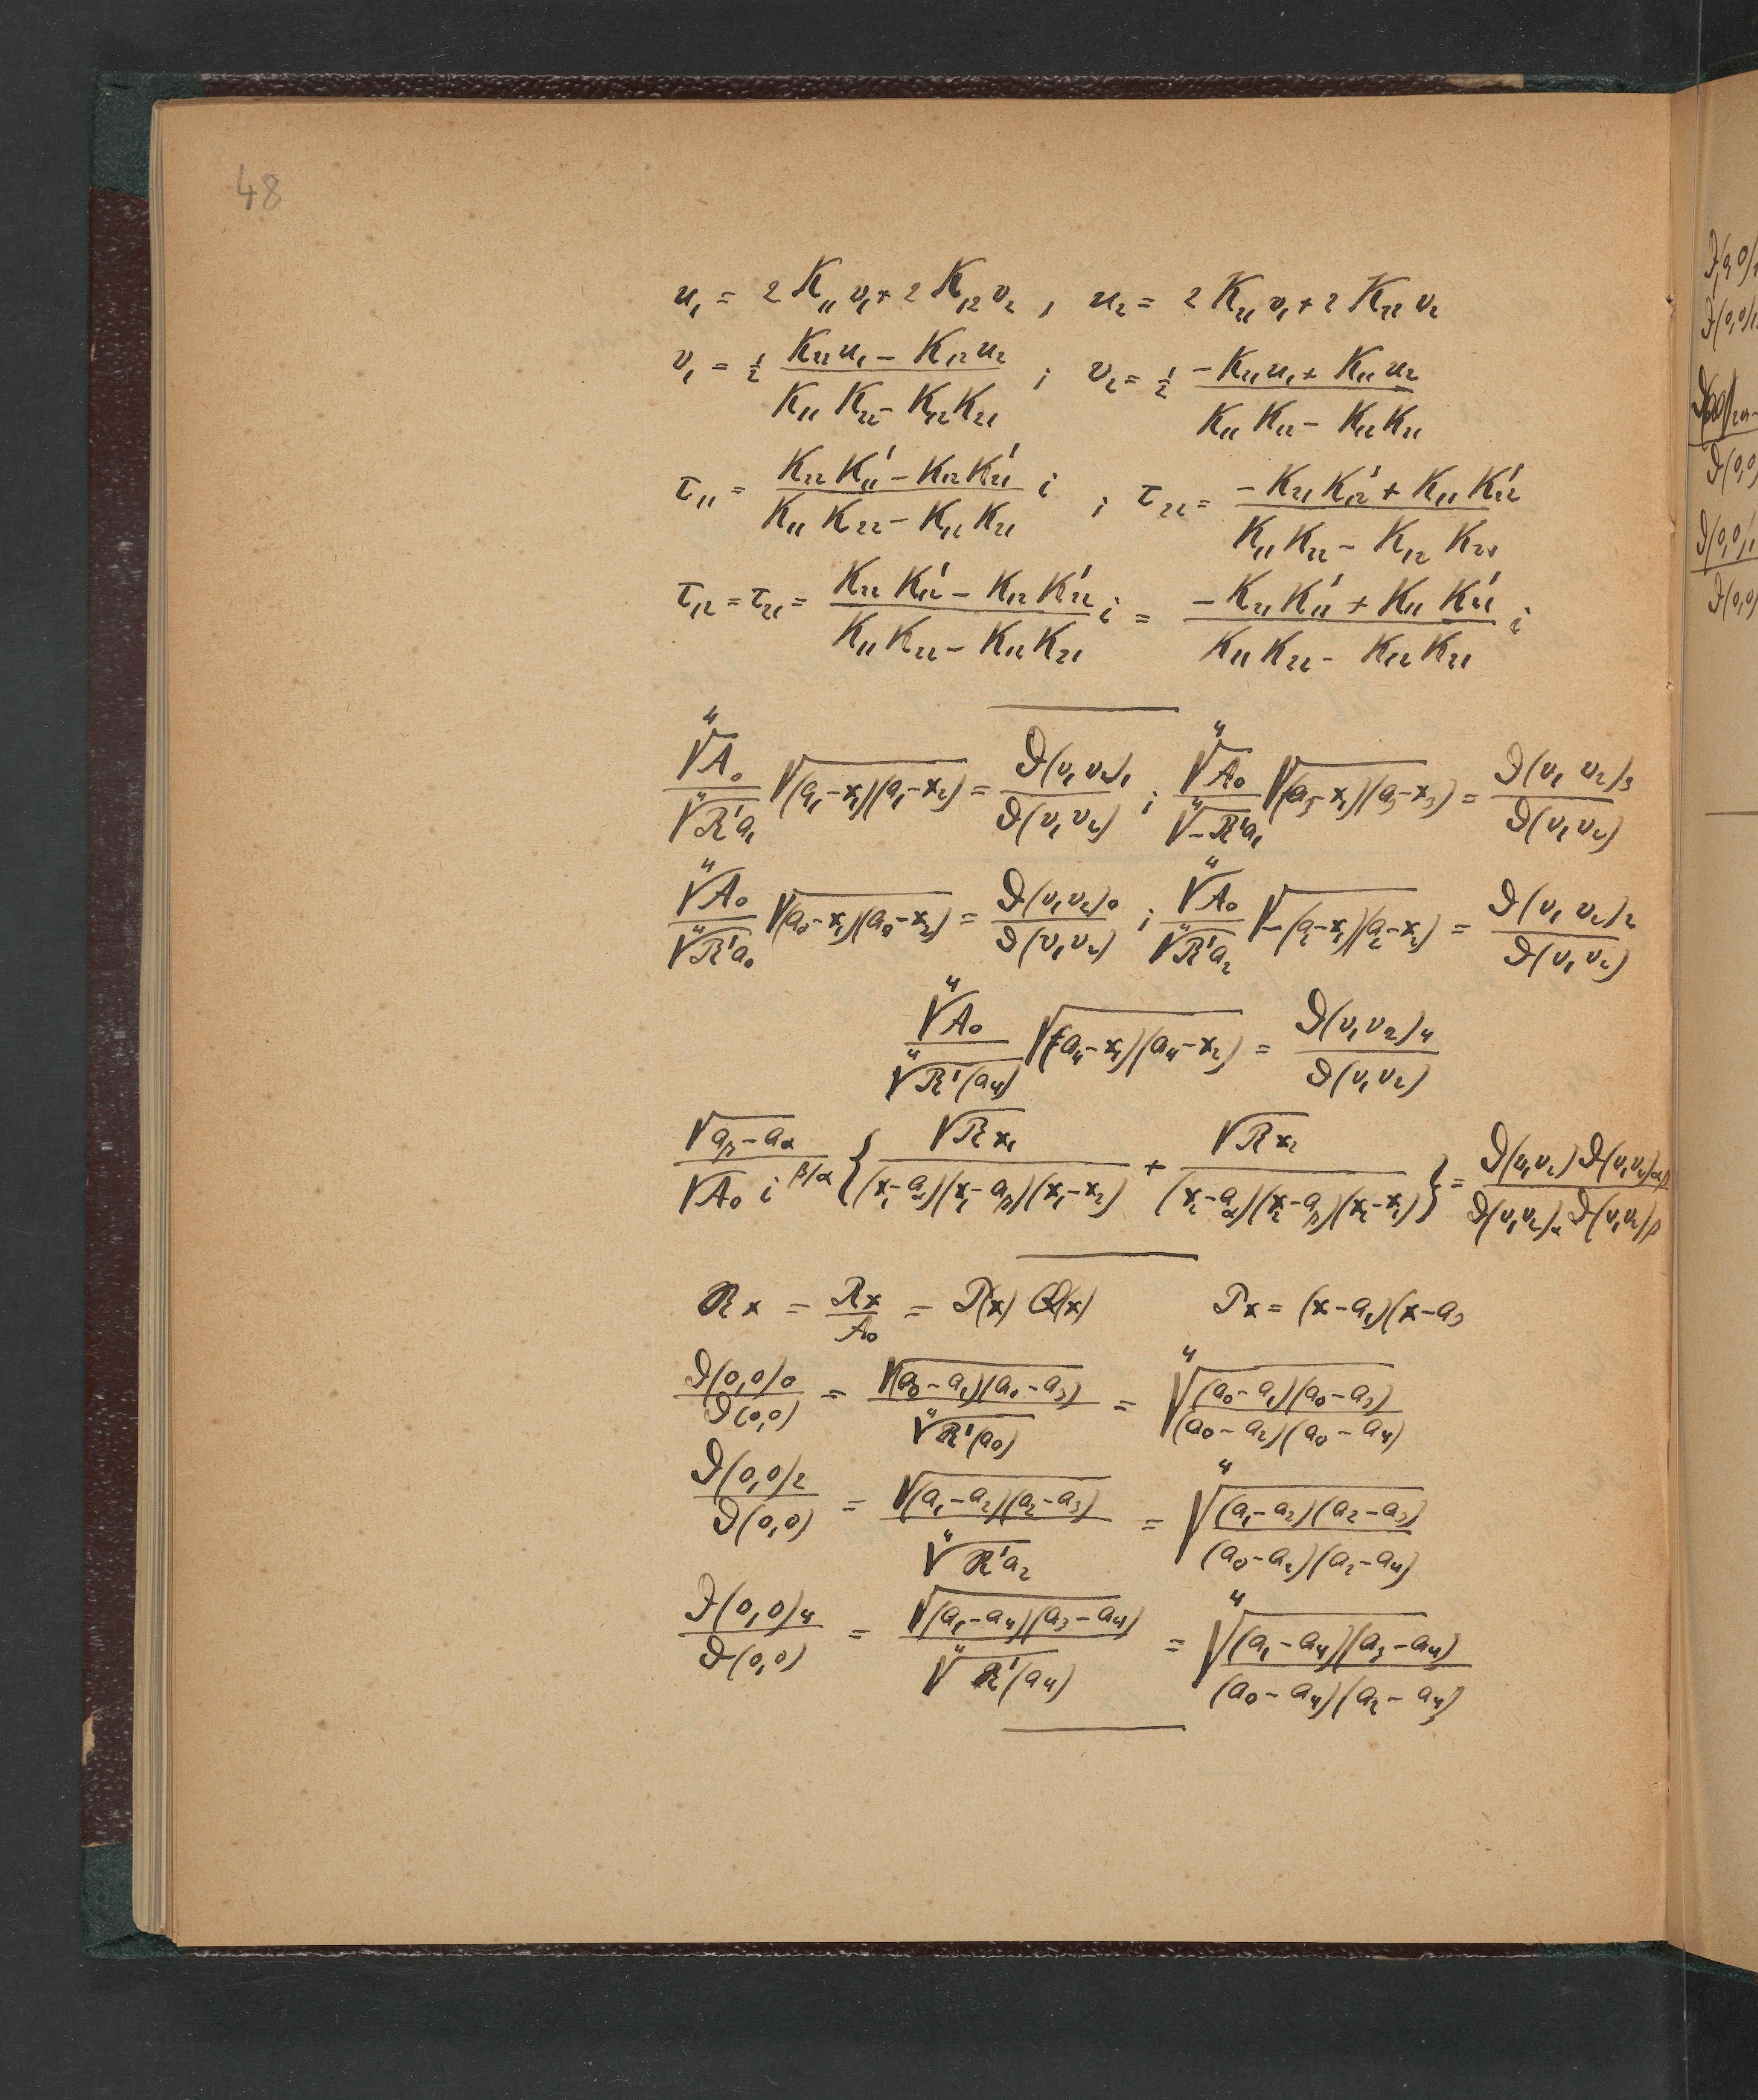 48
u₁ = 2 K₁₁ v₁ + 2 K₁₂ v₂ , u₂ = 2 K₂₁ v₁ + 2 K₂₂ v₂
v₁ = ½ (K₂₂ u₁ − K₁₂ u₂)/(K₁₁ K₂₂ − K₁₂ K₂₁) ; v₂ = ½ (−K₂₁ u₁ + K₁₁ u₂)/(K₁₁ K₂₂ − K₁₂ K₂₁)
τ₁₁ = (K₂₂ K₁₁' − K₁₂ K₂₁')/(K₁₁ K₂₂ − K₁₂ K₂₁) i ; τ₂₂ = (−K₂₁ K₁₂' + K₁₁ K₂₂')/(K₁₁ K₂₂ − K₁₂ K₂₁)
τ₁₂ = τ₂₁ = (K₂₂ K₁₂' − K₁₂ K₂₂')/(K₁₁ K₂₂ − K₁₂ K₂₁) i = (−K₂₁ K₁₁' + K₁₁ K₂₁')/(K₁₁ K₂₂ − K₁₂ K₂₁) i
∜A₀/∜R'a₁ √(a₁−x₁)(a₁−x₂) = ϑ(v₁ v₂)₁/ϑ(v₁ v₂) ; ∜A₀/∜−R'a₁ √(a₃−x₁)(a₃−x₃) = ϑ(v₁ v₂)₃/ϑ(v₁ v₂)
∜A₀/∜R'a₀ √(a₀−x₁)(a₀−x₂) = ϑ(v₁ v₂)₀/ϑ(v₁ v₂) ; ∜A₀/∜R'a₂ √−(a₂−x₁)(a₂−x₂) = ϑ(v₁ v₂)₂/ϑ(v₁ v₂)
∜A₀/∜R'(a₄) √(a₄−x₁)(a₄−x₂) = ϑ(v₁ v₂)₄/ϑ(v₁ v₂)
√(aβ−aα)/(√A₀ i^(β/α)) {√Rx₁/((x₁−aα)(x₁−aβ)(x₁−x₂)) + √Rx₂/((x₂−aα)(x₂−aβ)(x₂−x₁))} = ϑ(v₁,v₂) ϑ(v₁v₂)αβ/(ϑ(v₁v₂)α ϑ(v₁v₂)β)
R x = Rx/A₀ = P(x) Q(x) Px = (x−a₁)(x−a₃
ϑ(0,0)₀/ϑ(0,0) = √(a₀−a₁)(a₀−a₃)/∜R'(a₀) = ∜((a₀−a₁)(a₀−a₃)/(a₀−a₂)(a₀−a₄))
ϑ(0,0)₂/ϑ(0,0) = √(a₁−a₂)(a₂−a₃)/∜R'a₂ = ∜((a₁−a₂)(a₂−a₃)/(a₀−a₂)(a₂−a₄))
ϑ(0,0)₄/ϑ(0,0) = √(a₁−a₄)(a₃−a₄)/∜R'(a₄) = ∜((a₁−a₄)(a₃−a₄)/(a₀−a₄)(a₂−a₄))